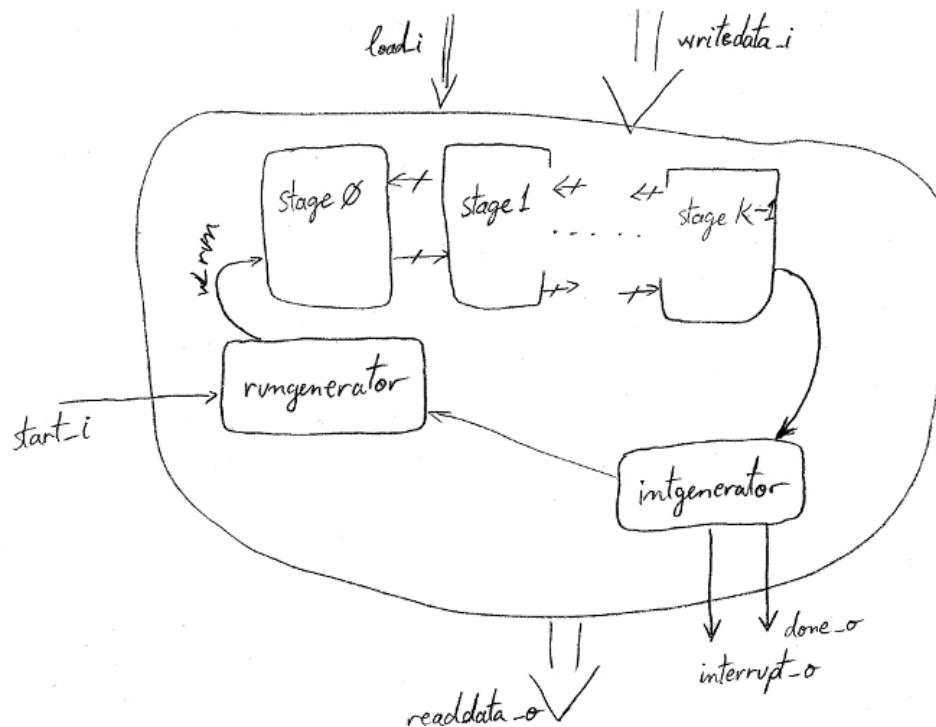 load_i
writedata_i
stage 0
stage 1
.....
stage K-1
rungenerator
start_i
intgenerator
done_o
interrupt_o
readdata_o